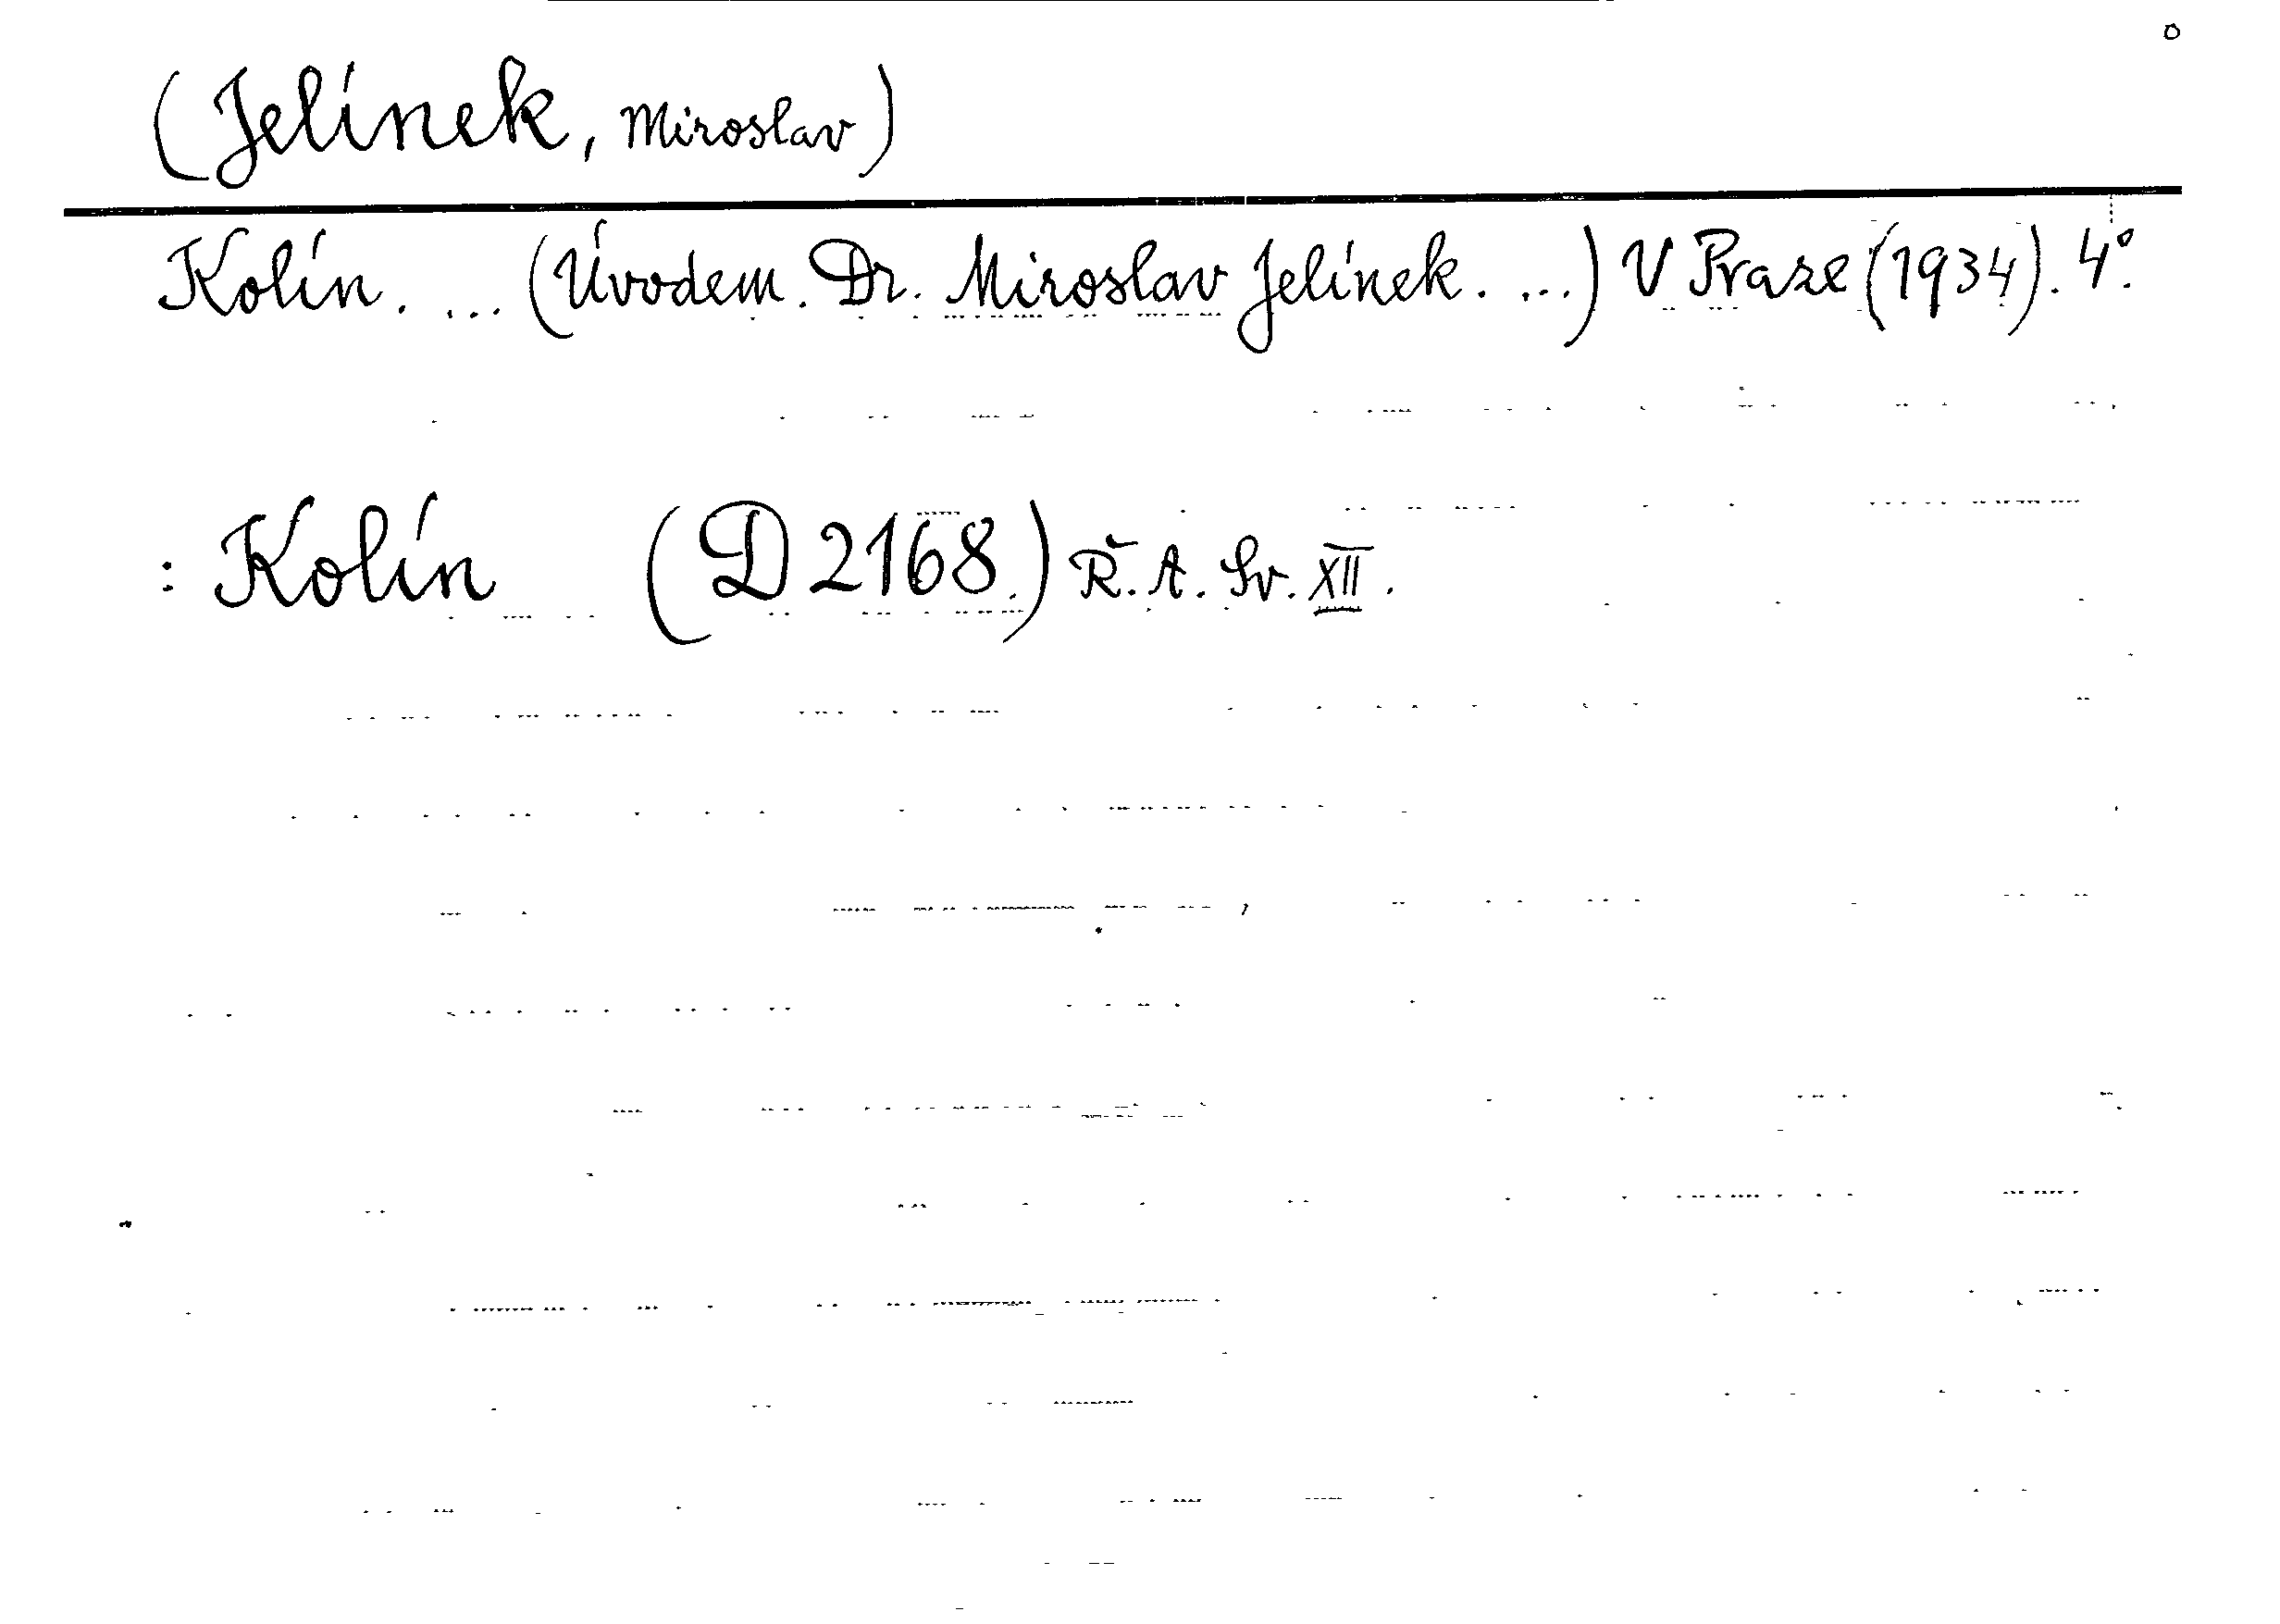 (Jelínek, Miroslav)
Kolín. ... (Úvodem. Dr. Miroslav Jelínek. ...) V Praze (1934). 4°.
: Kolín (D 2168.) Ř. A. Sv. XII.